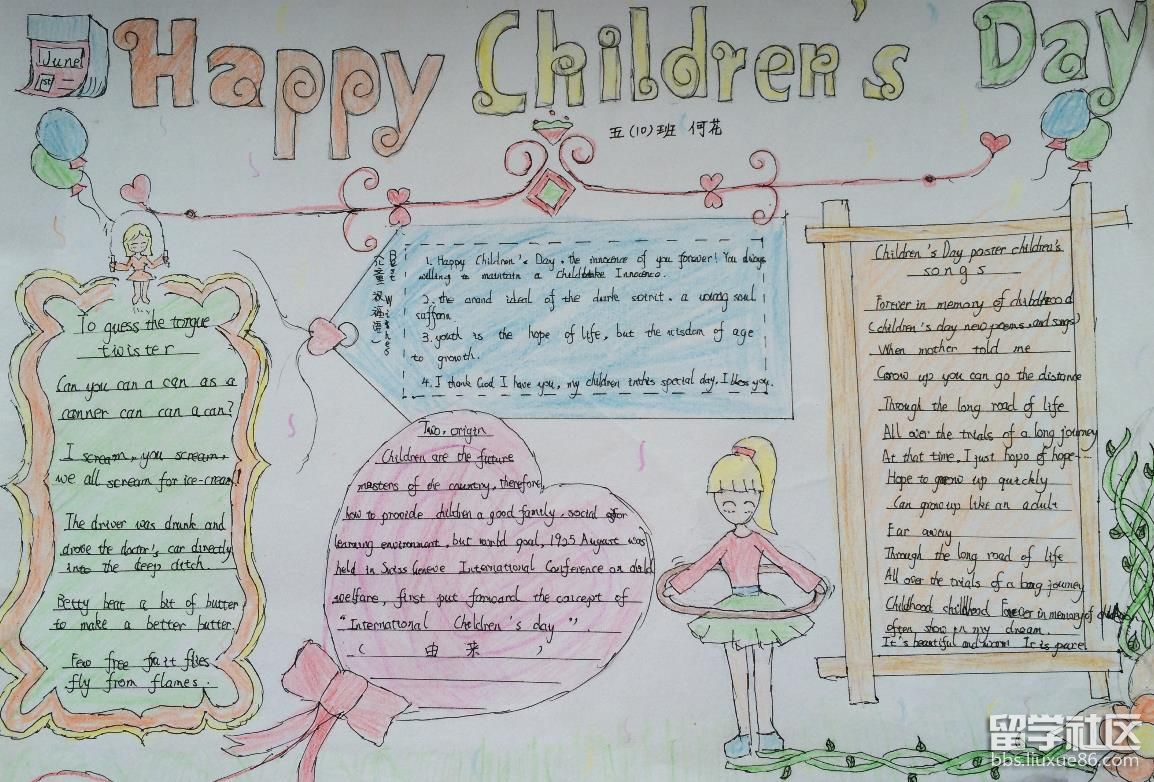 June
1st
Happy Children's Day
五(10)班 何花
To guess the tongue
twister
Can you can a can as a
canner can can a can?
I scream, you scream,
we all scream for ice-cream!
The driver was drunk and
drove the doctor's car directly
into the deep ditch.
Betty beat a bit of butter
to make a better butter.
Few free fruit flies
fly from flames.
儿童祝福语)
Wishes
1. Happy Children's Day, the innocence of you forever! You always
willing to maintain a childlike Innocence.
2. the grand ideal of the dark spirit. a young soul
3. youth is the hope of life, but the wisdom of age
to growth.
4. I thank God I have you, my children in this special day, I bless you.
Two, origin
Children are the future
masters of the country, therefore,
how to provide children a good family, social for
learning environment, but world goal, 1925 August was
held in Swiss Geneve International Conference on child
welfare, first put forward the concept of
"International Children's day".
( 由来 )
Children's Day poster children's
songs
Forever in memory of childhood
(children's day new poems, and songs)
When mother told me
Grow up you can go the distance
Through the long road of life
All over the trials of a long journey
At that time, I just hope of hope---
Hope to grow up quickly
Can grow up like an adult
Far away
Through the long road of life
All over the trials of a long journey
Childhood childhood Forever in memory of
often show in my dream.
It's beautiful and warm It is pure!
留学社区
bbs.liuxue86.com